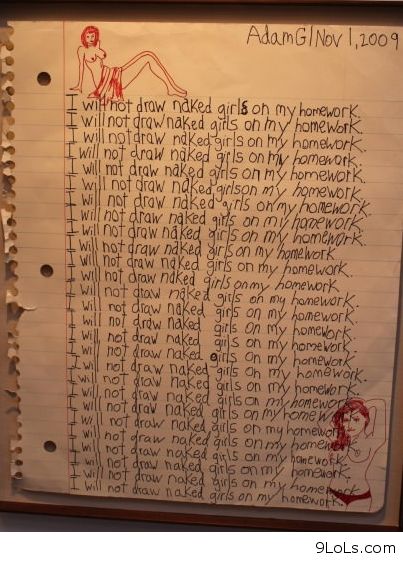 AdamG/Nov 1, 2009
I will not draw naked girls on my homework.
I will not draw naked girls on my homework.
I will not draw naked girls on my homework.
I will not draw naked girls on my homework.
I will not draw naked girls on my homework.
I will not draw naked girls on my homework.
I will not draw naked girls on my homework.
I will not draw naked girls on my homework.
I will not draw naked girls on my homework.
I will not draw naked girls on my homework.
I will not draw naked girls on my homework.
I will not draw naked girls on my homework.
I will not draw naked girls on my homework.
I will not draw naked girls on my homework.
I will not draw naked girls on my homework.
I will not draw naked girls on my homework.
I will not draw naked girls on my homework.
I will not draw naked girls on my homework.
I will not draw naked girls on my homework.
I will not draw naked girls on my homework.
I will not draw naked girls on my homework.
I will not draw naked girls on my homework.
I will not draw naked girls on my homework.
I will not draw naked girls on my homework.
I will not draw naked girls on my homework.
I will not draw naked girls on my homework.
I will not draw naked girls on my homework.
9LoLs.com